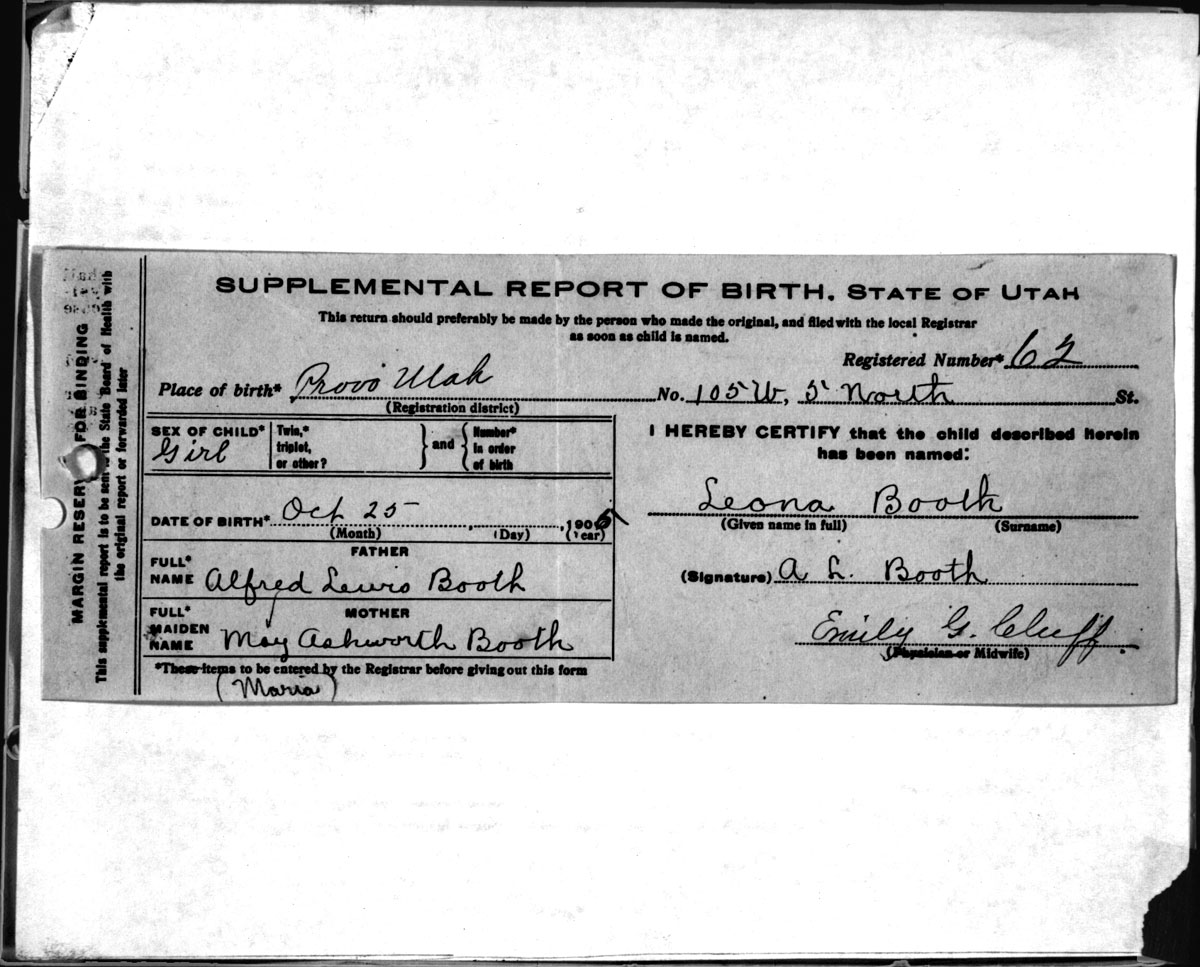 SUPPLEMENTAL REPORT OF BIRTH. STATE OF UTAH
This return should preferably be made by the person who made the original, and filed with the local Registrar
as soon as child is named.
Registered Number* 62
Place of birth* Provo Utah No. 105 W, 5 North St.
(Registration district)
SEX OF CHILD* Girl
Twin,* triplet, or other?
and
Number* in order of birth
DATE OF BIRTH* Oct 25, 1905
(Month) (Day) (Year)
FATHER
FULL* NAME Alfred Lewis Booth
MOTHER
FULL* MAIDEN NAME May Ashworth Booth
*These items to be entered by the Registrar before giving out this form
(Maria)
I HEREBY CERTIFY that the child described herein
has been named:
Leona Booth
(Given name in full) (Surname)
(Signature) A L. Booth
Emily G. Cluff
(Physician or Midwife)
MARGIN RESERVED FOR BINDING
This supplemental report is to be sent to the State Board of Health with
the original report or forwarded later